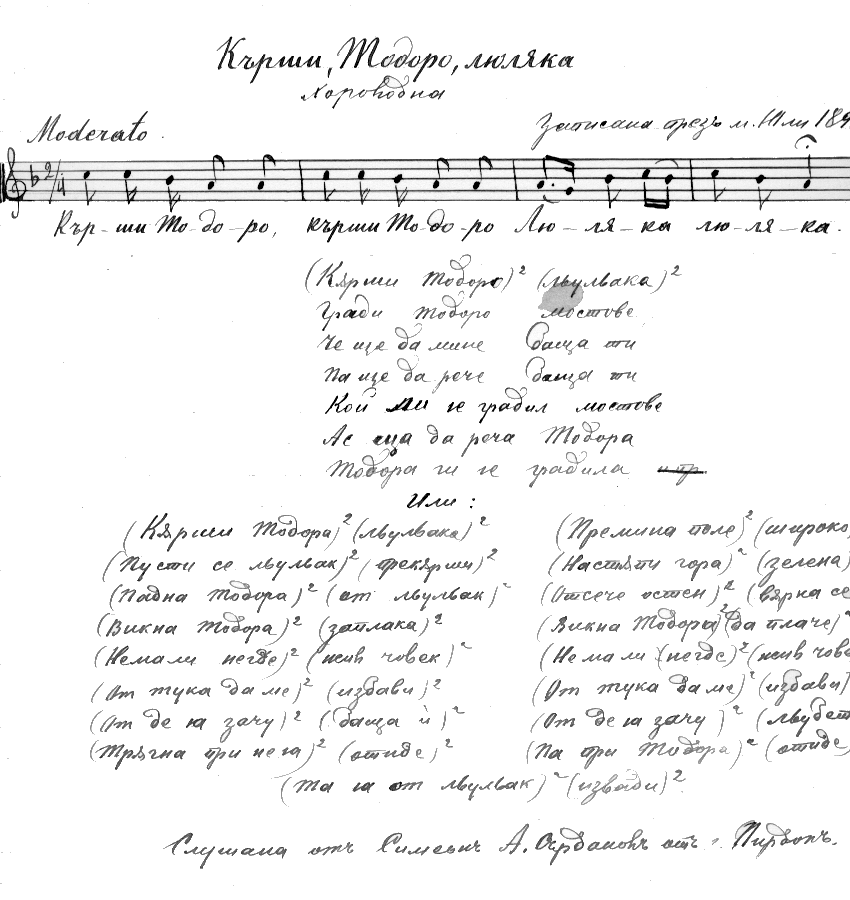 Кърши, Тодоро, люляка
Хороводна
Moderato.
Записана презъ м. Юли 189
2/4
Кър-ши То-до-ро, кърши То-до-ро Лю-ля-ка лю-ля-ка.
(Кярши Тодоро)² (льульака)²
Гради Тодоро мостове
Че ще да мине баща ти
Па ще да рече баща ти
Кой ли ге градил мостове
Ас ща да реча Тодора
Тодора ги ге градила
Или:
(Кярши Тодора)² (льульака)² (Премина поле)² (широко)
(Пусти се льульак)² (прекярши)² (Настяпи гора)² (зелена)
(Падна Тодора)² (от льульак)² (Отсече остен)² (вярна се
(Викна Тодора)² (заплака)² (Викна Тодора)² (да плаче)²
(Немали негде)² (жив човек)² (Немали негде)² (жив чове
(От тука да ме)² (избави)² (От тука да ме)² (избави)
(От де ю зачу)² (баща ѝ)² (От де ю зачу)² (льубет
(Трягна при нега)² (отиде)² (Па при Тодора)² (отиде)
(Та ю от льульак)² (извади)²
Слушана отъ Симеънъ А. Сърбановъ отъ г. Пирдопъ.